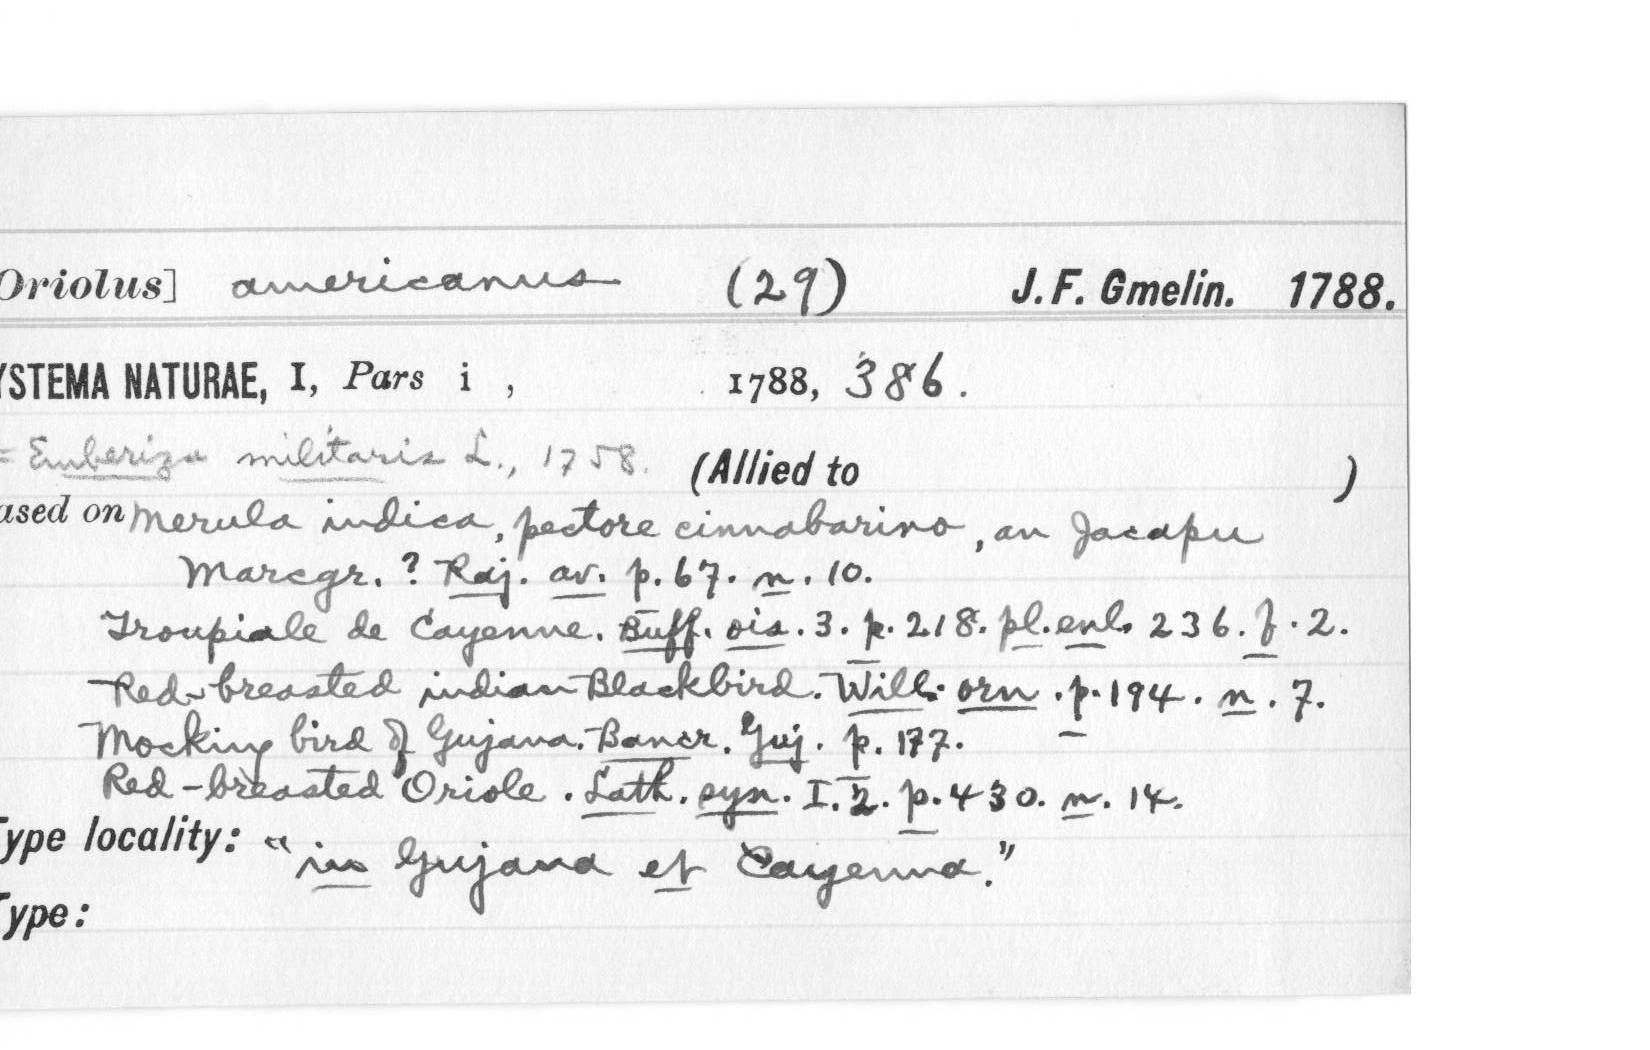 Oriolus] americanus (29) J. F. Gmelin. 1788.
YSTEMA NATURAE, I, Pars i , 1788, 386.
= Emberiza militaris L., 1758. (Allied to )
ased on Merula indica, pectore cinnabarino, an Jacapu
Marcgr. ? Raj. av. p. 67. n. 10.
Troupiale de Cayenne. Buff. ois. 3. p. 218. pl. enl. 236. f. 2.
Red-breasted indian Blackbird. Will. orn. p. 194. n. 7.
Mocking bird of Gujana. Bancr. Guj. p. 177.
Red-breasted Oriole. Lath. syn. I. 2. p. 430. n. 14.
Type locality: "in Gujana et Cayenna."
Type: